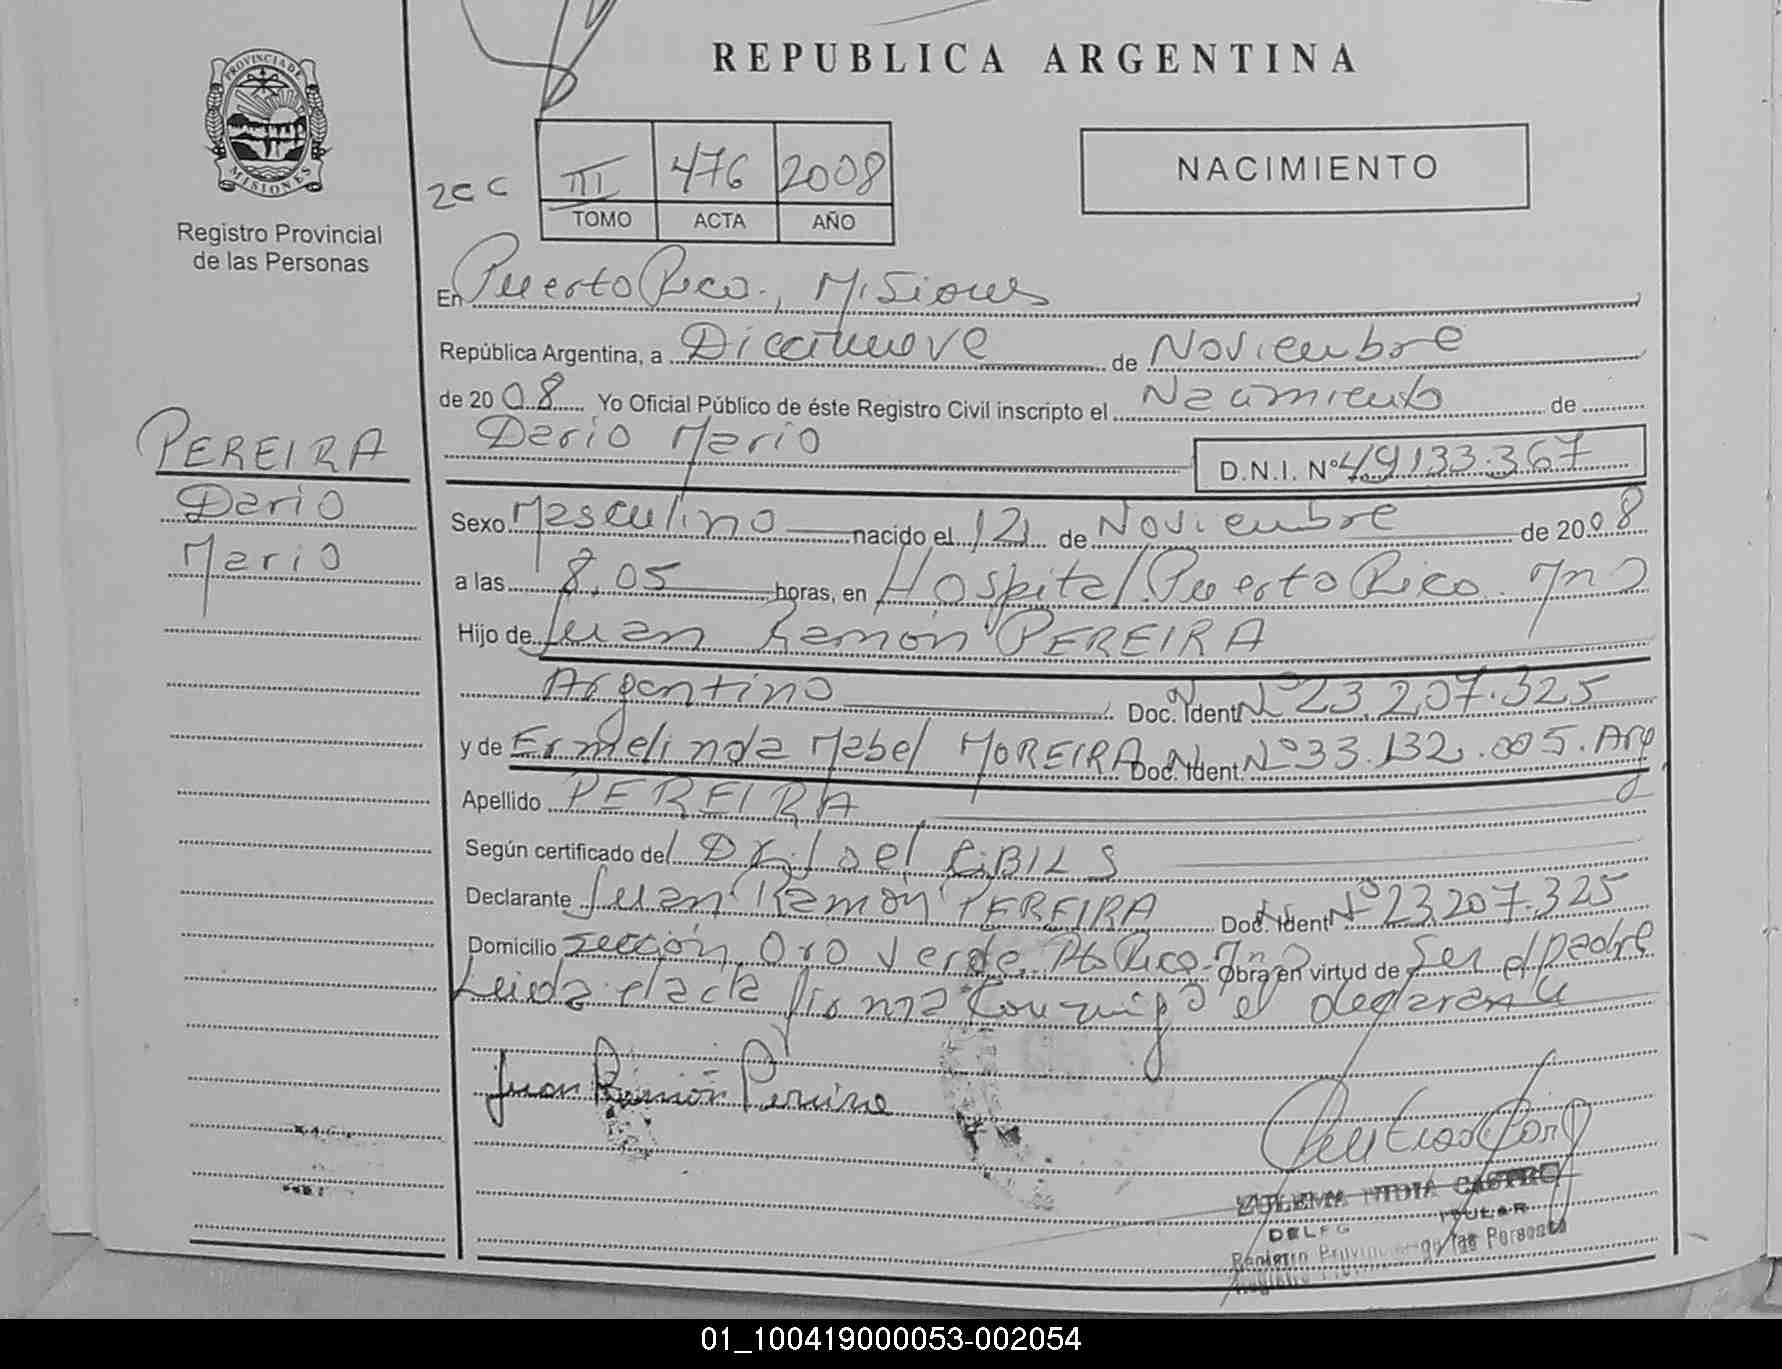 REPUBLICA ARGENTINA
PROVINCIA DE
MISIONES
Registro Provincial
de las Personas
III 476 2008
TOMO ACTA AÑO
NACIMIENTO
En Puerto Rico, Misiones
República Argentina, a Diecinueve de Noviembre
de 2008 Yo Oficial Público de éste Registro Civil inscripto el Nacimiento de
Dario Mario D.N.I. Nº 49133.367
PEREIRA
Dario
Mario
Sexo Masculino nacido el 12 de Noviembre de 2008
a las 8,05 horas, en Hospital Puerto Rico. Mns
Hijo de Juan Ramón PEREIRA
Argentino Doc. Ident. Nº 23.207.325
y de Ermelinda Mabel MOREIRA Doc. Ident. Nº 33.132.005. Arg
Apellido PEREIRA
Según certificado del Dr. Joel CIBILS
Declarante Juan Ramón PEREIRA Doc. Ident. Nº 23.207.325
Domicilio sección Oro Verde. Pto Rico. Mns Obra en virtud de Ser el padre
Leida el acta firma conmigo el declarante
Juan Ramón Pereira
ZULEMA NIDIA CASTRO
TITULAR
Registro Provincial de las Personas
01_100419000053-002054